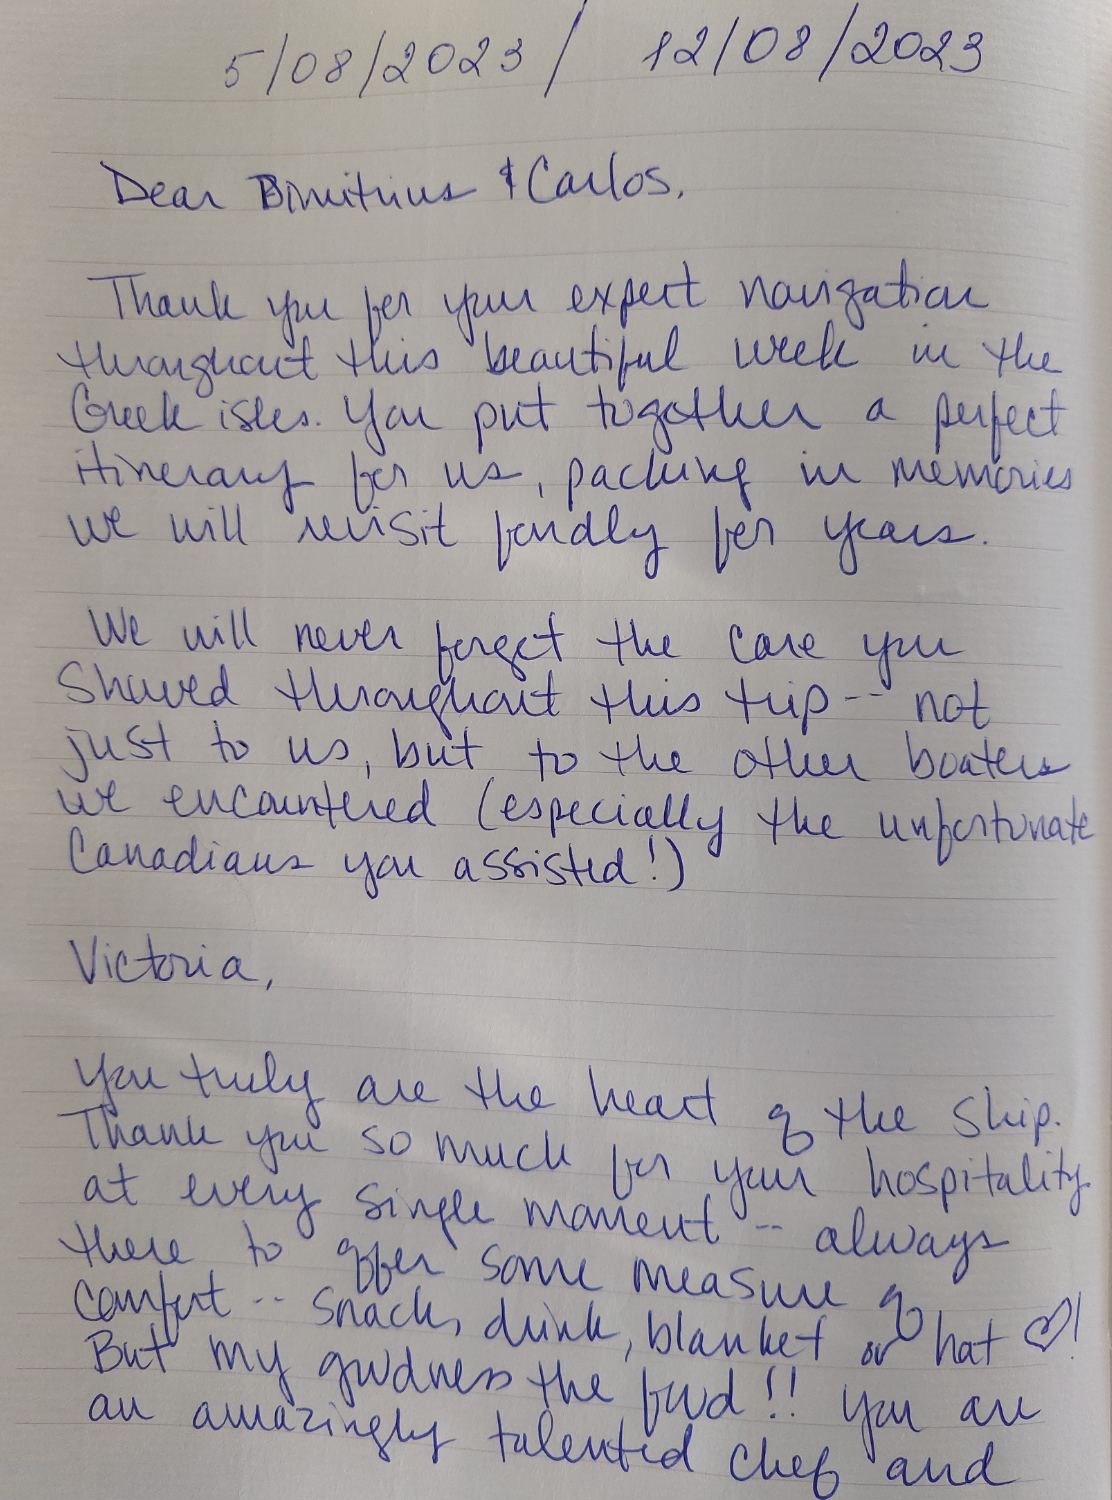 5/08/2023 / 12/08/2023
Dear Dimitrius & Carlos,
Thank you for your expert navigation
throughout this beautiful week in the
Greek isles. You put together a perfect
itinerary for us, packing in memories
we will revisit fondly for years.
We will never forget the care you
Showed throughout this trip -- not
just to us, but to the other boaters
we encountered (especially the unfortunate
Canadians you assisted!)
Victoria,
You truly are the heart of the ship.
Thank you so much for your hospitality
at every single moment -- always
there to offer some measure of
comfort -- snack, drink, blanket or hat ♡!
But my goodness the food!! You are
an amazingly talented chef and